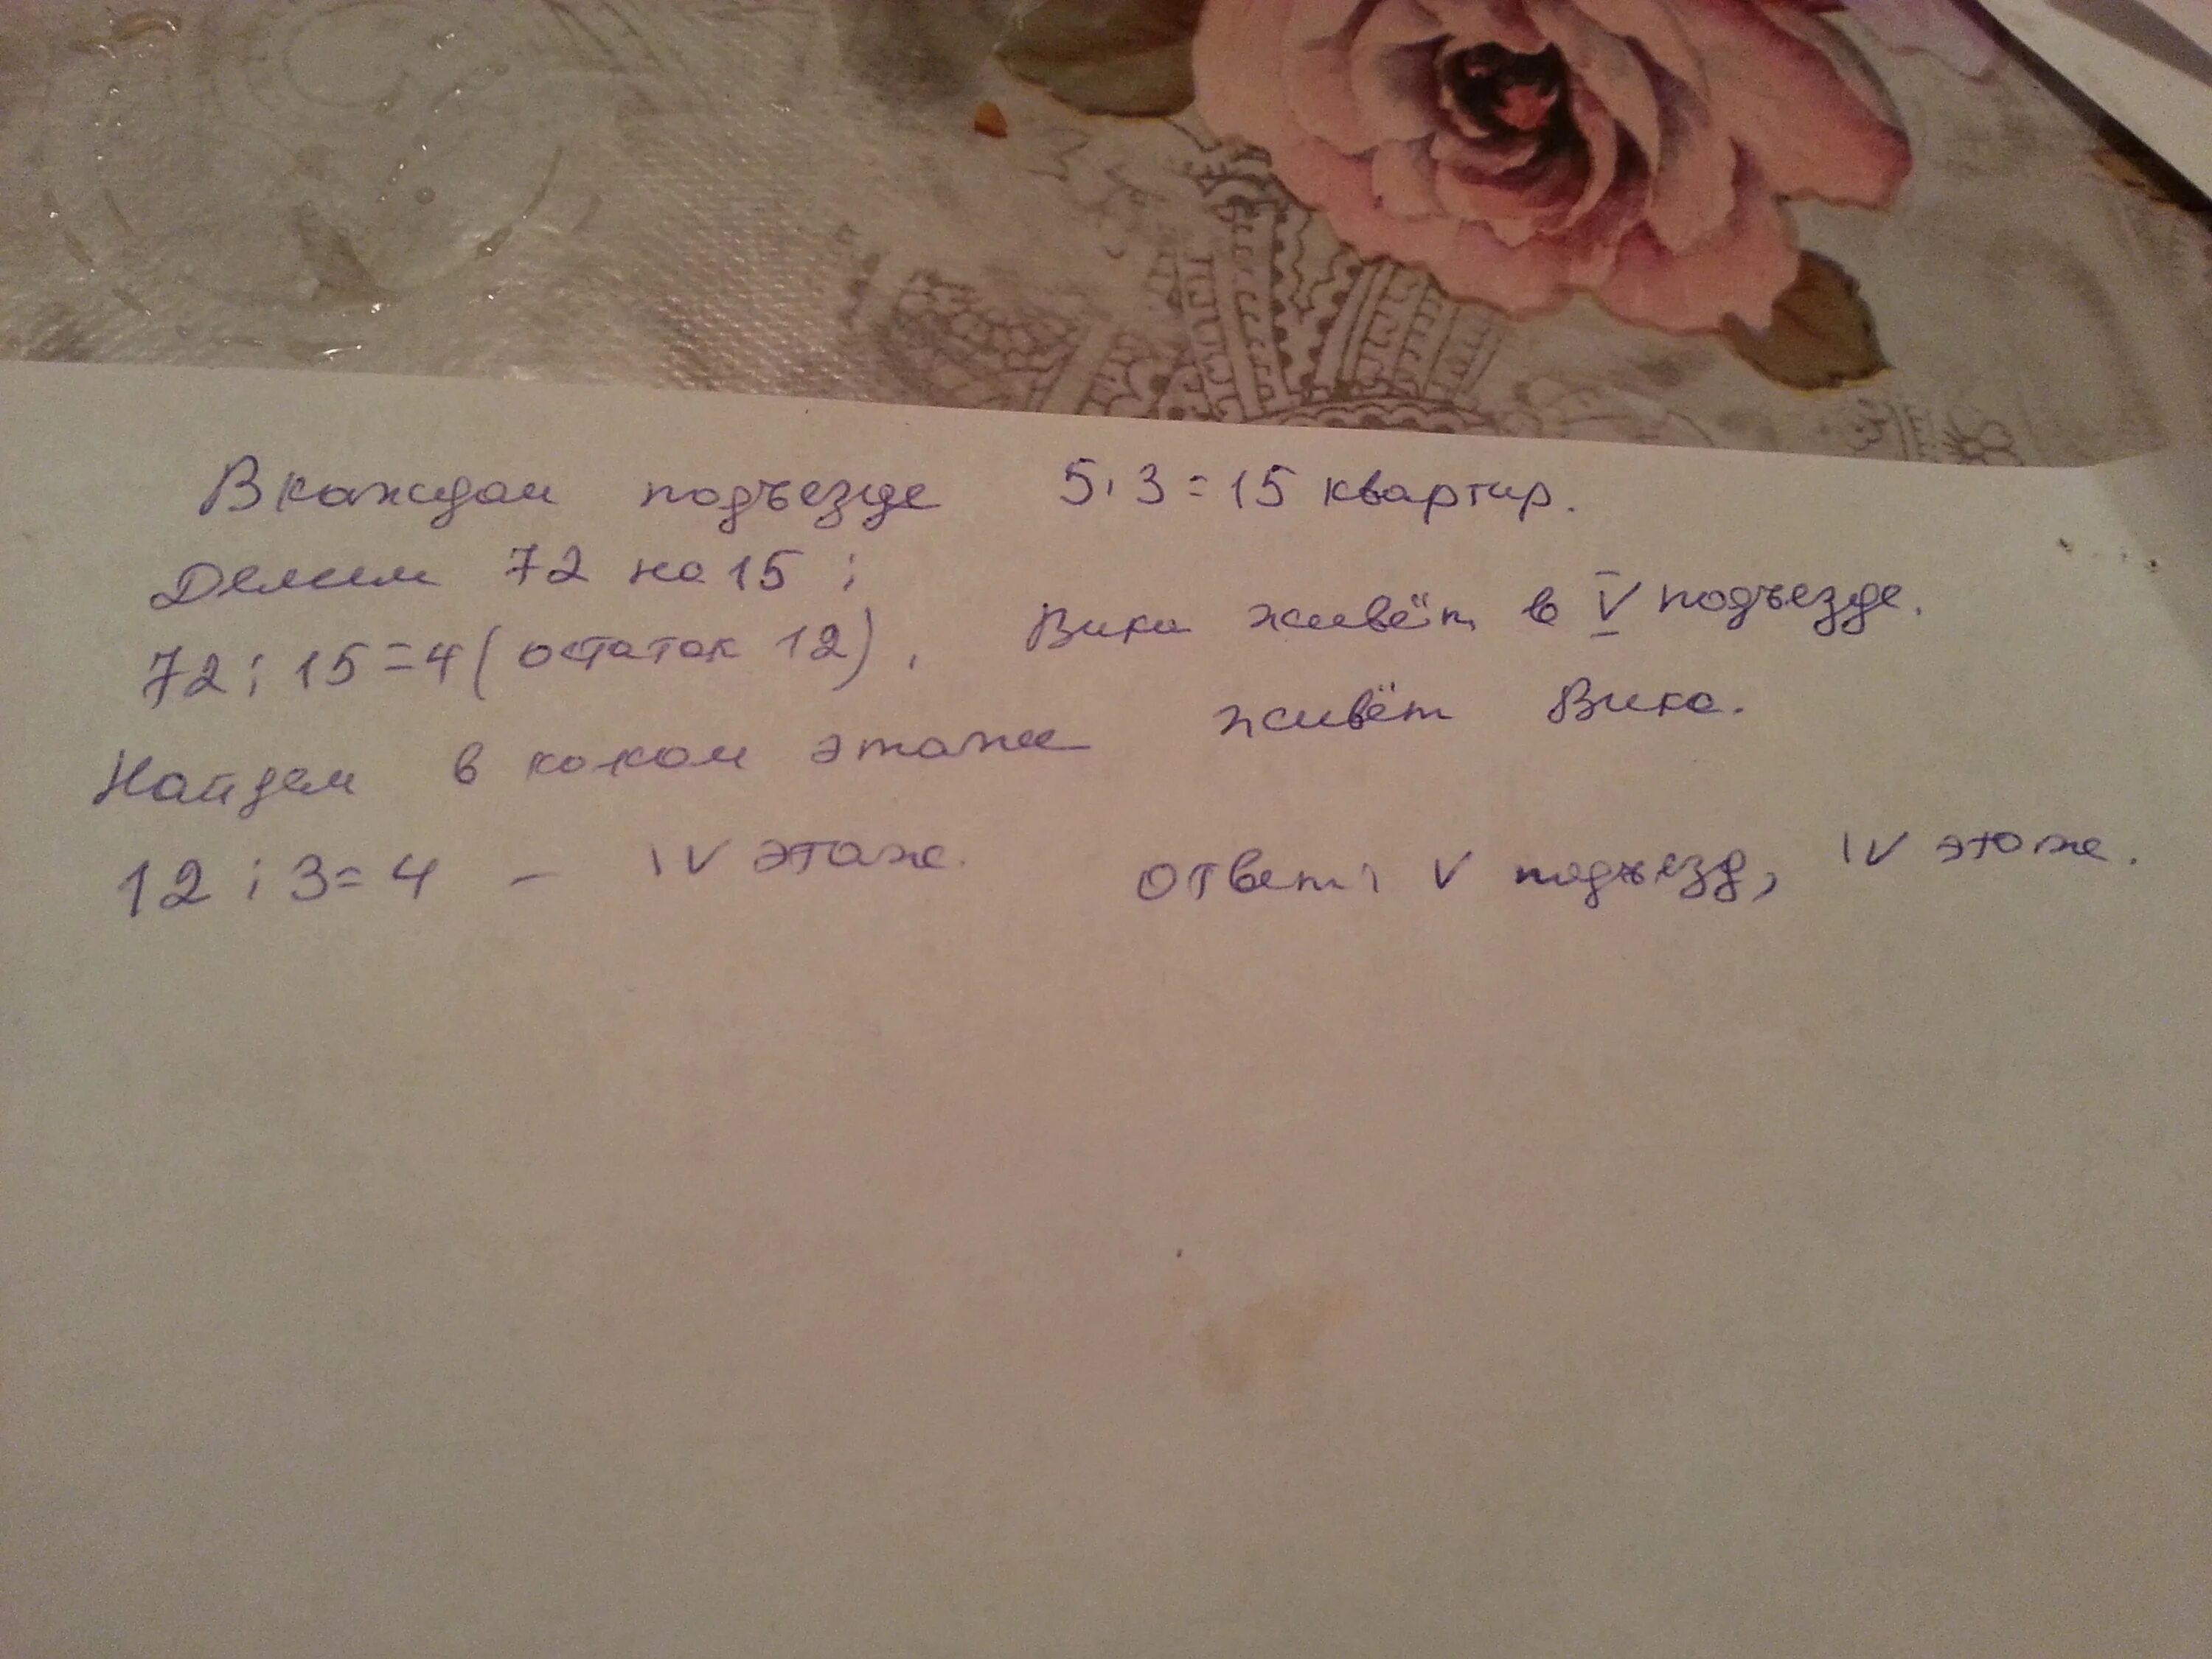 В каждом подъезде 5·3=15 квартир.
Делим 72 на 15:
72:15=4(остаток 12). Вика живёт в V подъезде.
Найдем в каком этаже живёт Вика.
12:3=4 – IV этаж. Ответ: V подъезд, IV этаж.